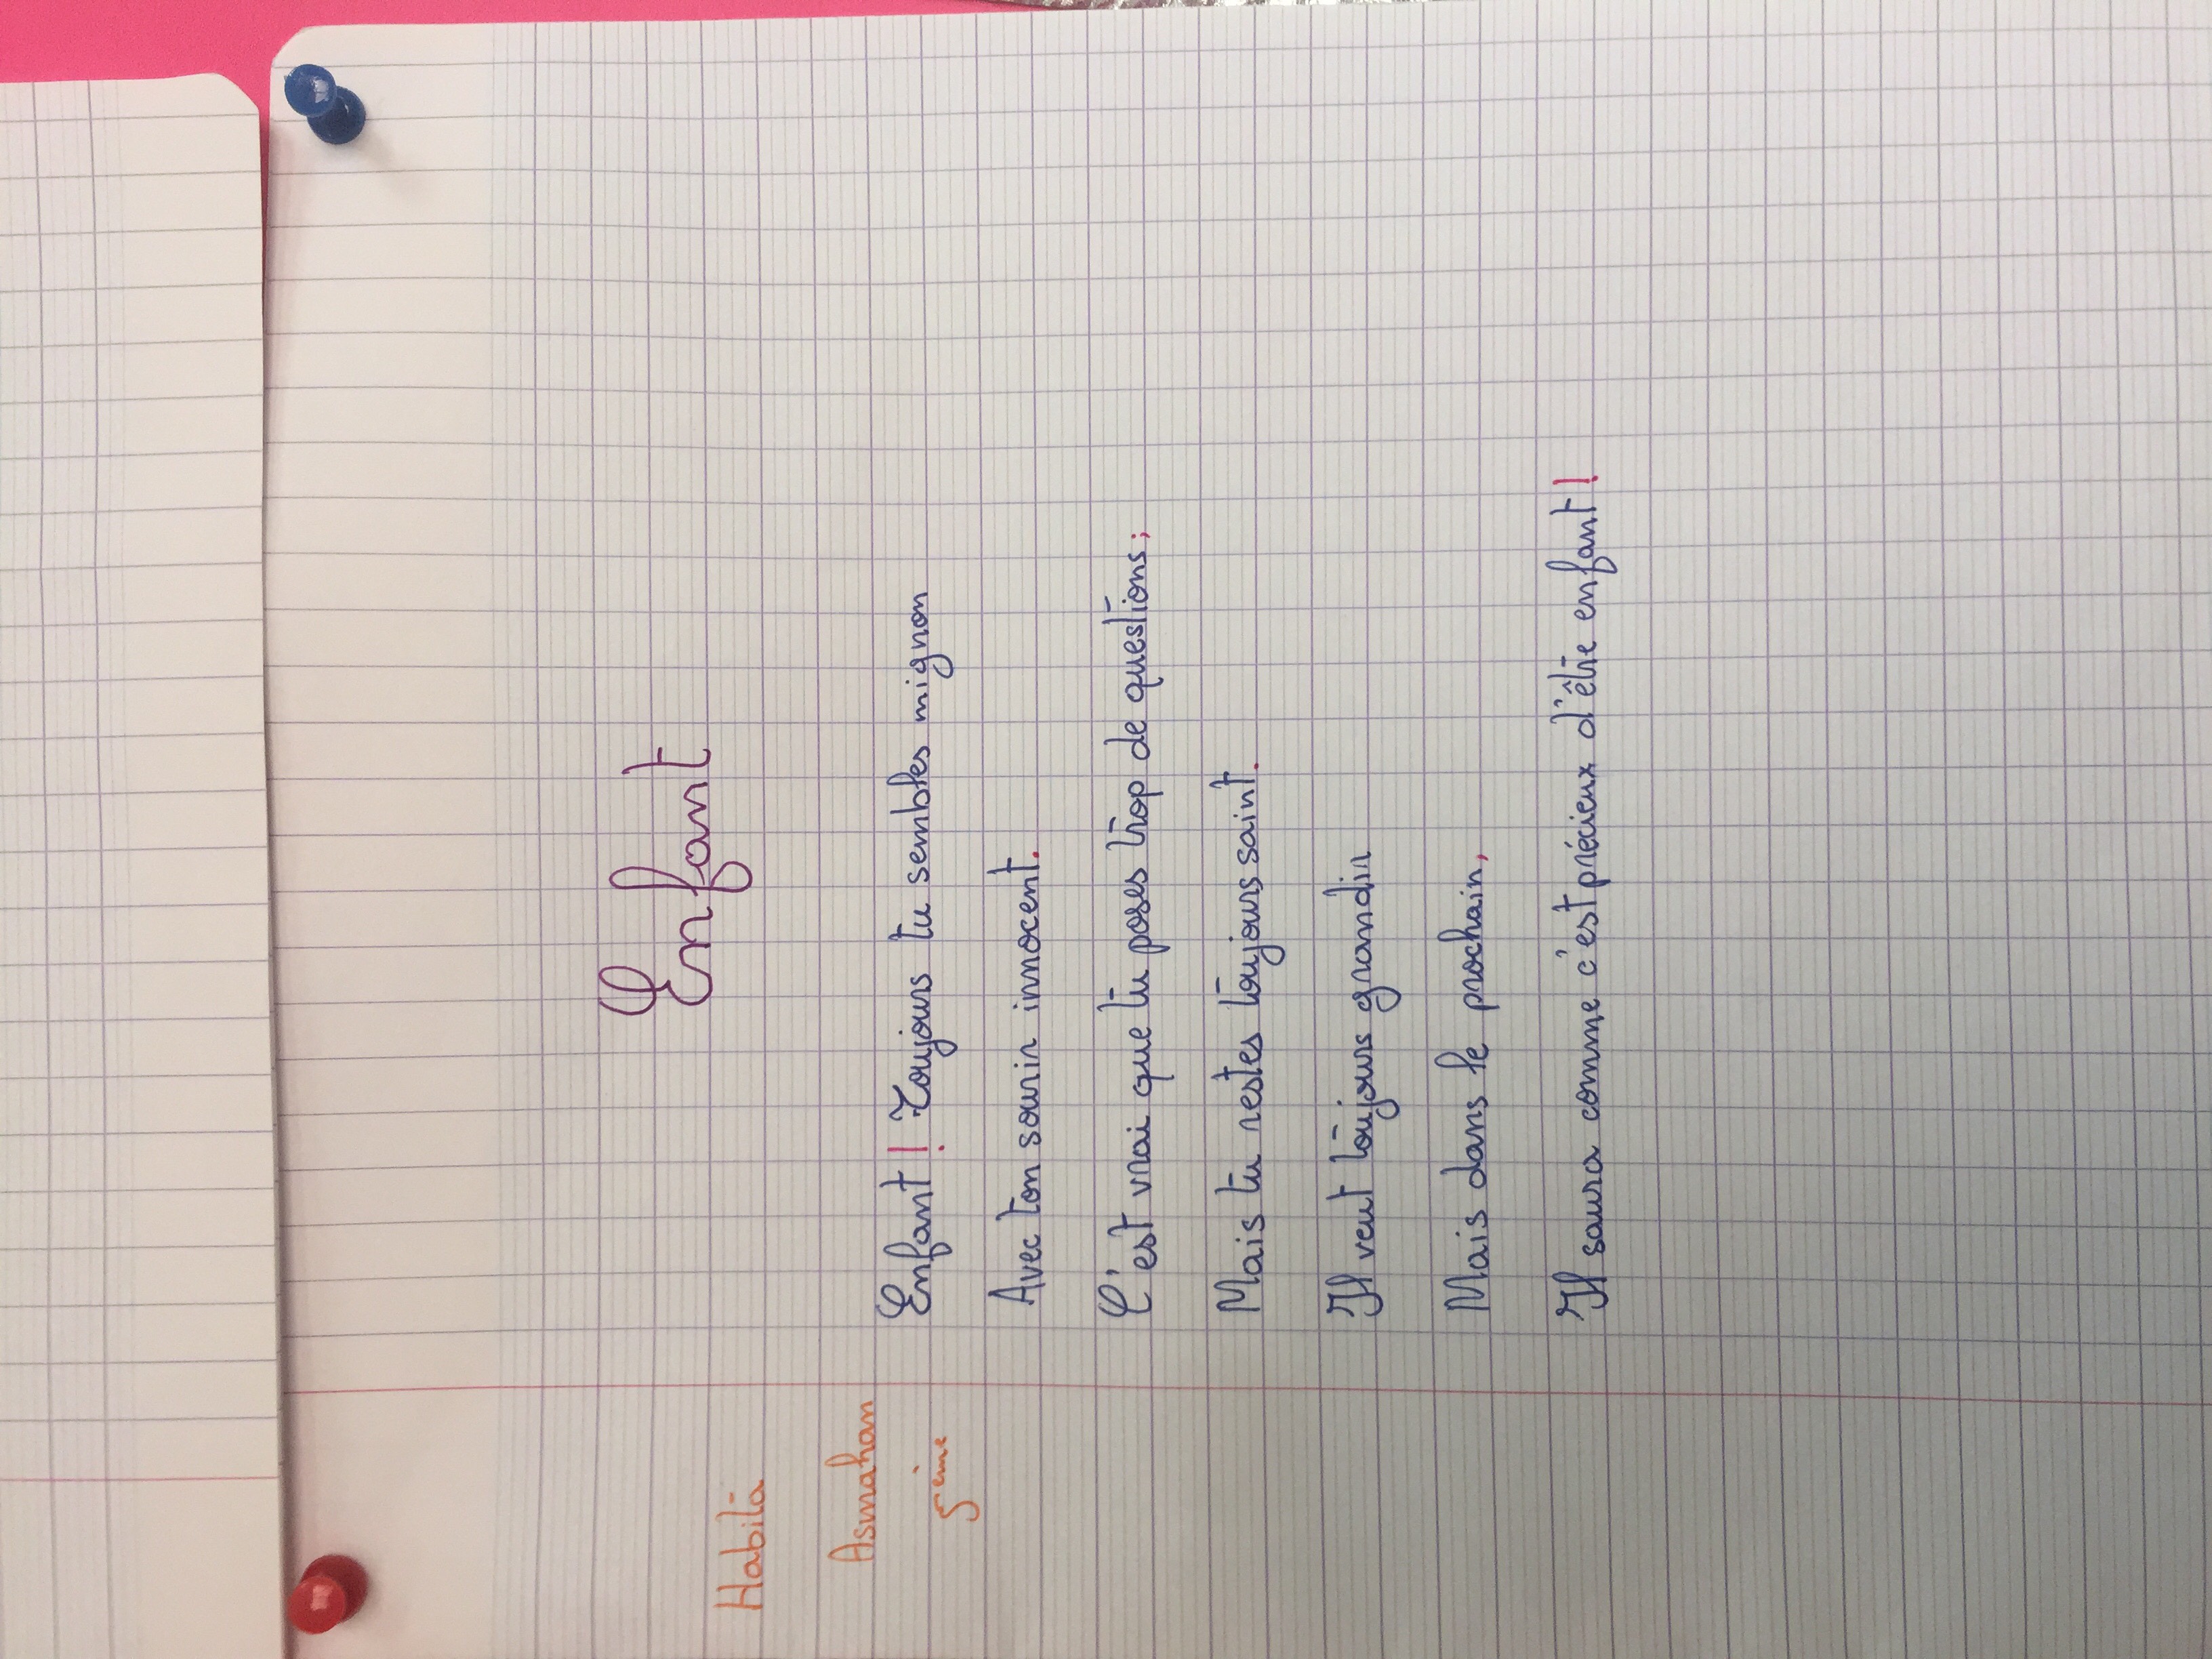 Enfant
Habita
Asmahan
5eme
Enfant ! Toujours tu sembles mignon
Avec ton sourir innocent.
C'est vrai que tu poses trop de questions ;
Mais tu restes toujours saint.
Il veut toujours grandir
Mais dans le prochain,
Il saura comme c'est précieux d'être enfant !